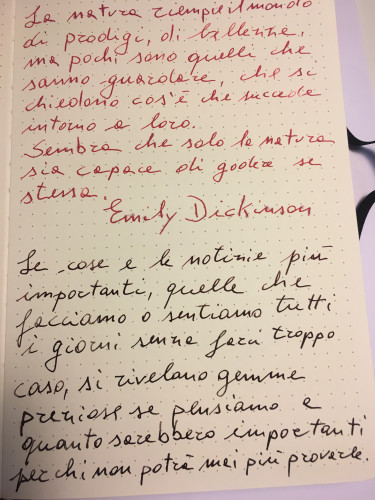 La natura riempie il mondo
di prodigi, di ballerine,
ma pochi sono quelli che
sanno guardare, che si
chiedono cos'è che succede
intorno a loro.
Sembra che solo la natura
sia capace di godere se
stessa.
Emily Dickinson
Le cose e le notizie più
importanti, quelle che
facciamo o sentiamo tutti
i giorni senza farci troppo
caso, si rivelano gemme
preziose se pensiamo a
quanto sarebbero importanti
per chi non potrà mai più provarle.